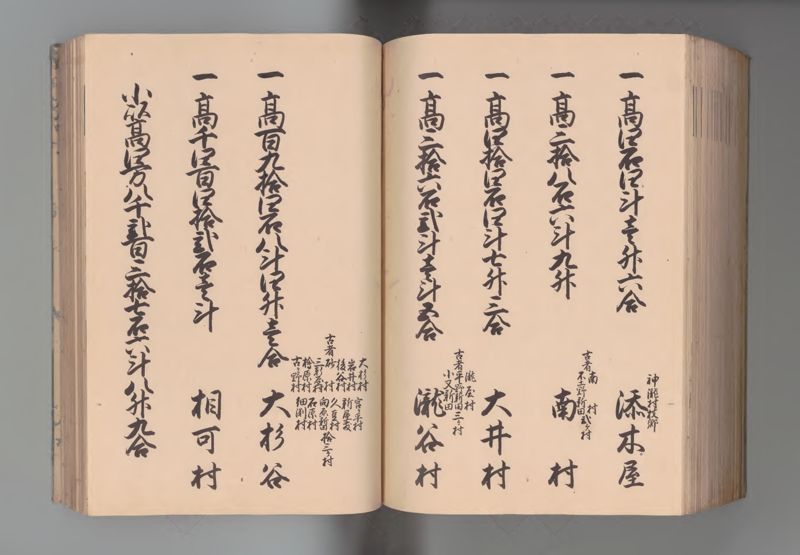 一 高四石四斗壱升六合
神瀬村枝郷
添木屋
一 高三拾八石六斗九升
古者
南村
新田
弐ヶ村
南村
一 高四拾四石四斗七升三合
大井村
一 高三拾六石弐斗壱斗五合
古者
瀧屋村
平野新田
小又新田
三ヶ村
瀧谷村
一 高百九拾四石八斗四升壱合
古者
大杉村
岩井村
後谷村
砂村
桧原村
古野村
新屋敷
久豆村
石原村
細渕村
拾三ヶ村
大杉谷
一 高千四百四拾弐石壱斗
相可村
小以高四万八千弐百三拾七石六斗八升九合